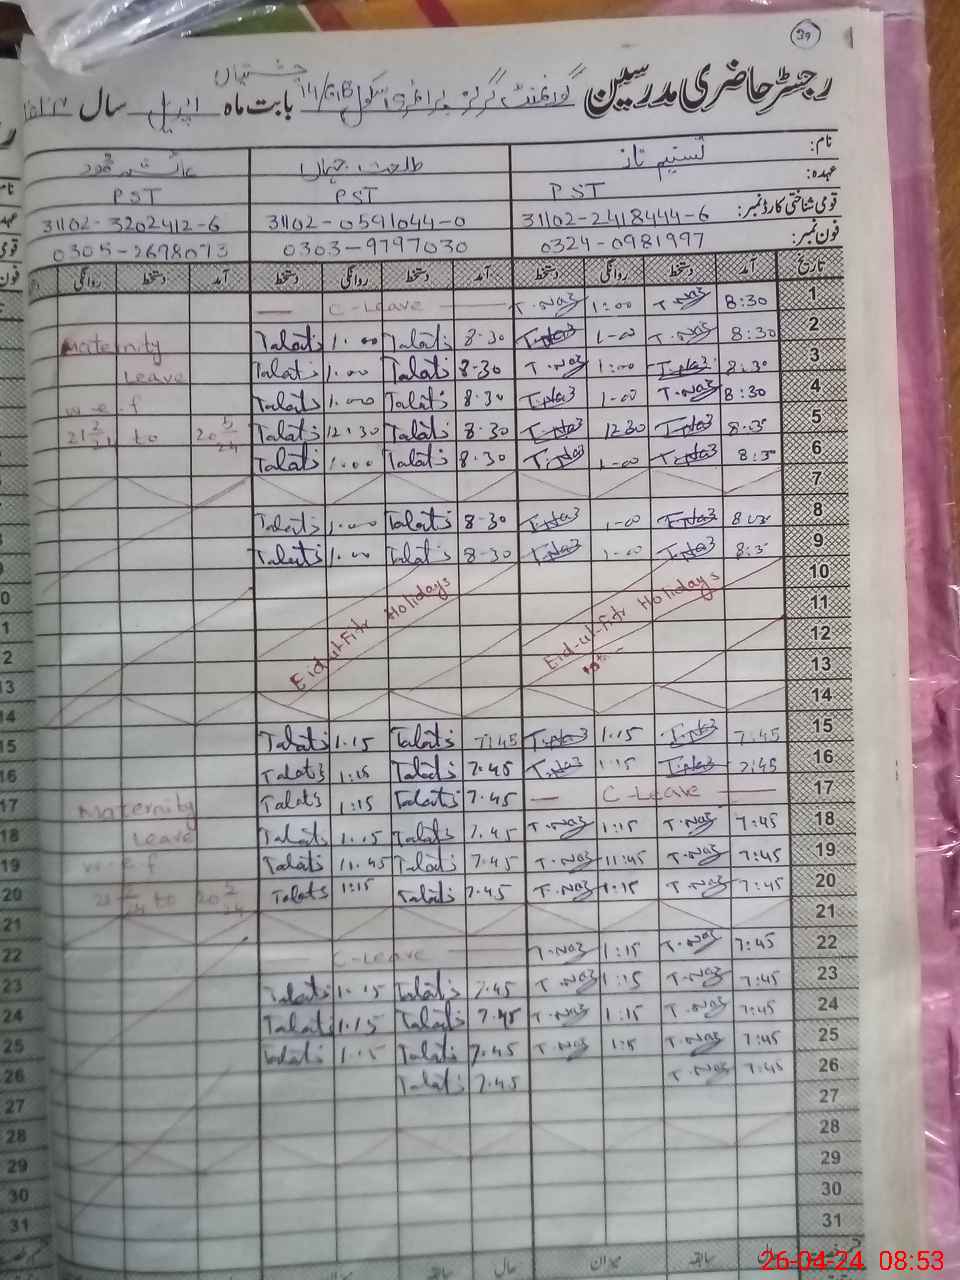 39
رجسٹر حاضری مدرسین گورنمنٹ گرلز پرائمری سکول 14/G.B بابت ماہ اپریل سال
نام: تسنیم ناز طلعت جہاں
عہدہ: PST PST PST
قومی شناختی کارڈ نمبر: 31102-2418444-6 31102-0591044-0 31102-3202412-6
فون نمبر: 0324-0981997 0303-9797030 0305-2698073
تاریخ آمد دستخط روانگی دستخط آمد دستخط روانگی دستخط آمد دستخط روانگی
1 8:30 T.Naz 1:00 T.Naz C-Leave
2 8:30 T.Naz 1-00 T.Naz 8-30 Talat's 1.00 Talat's Maternity
3 8:30 T.Naz 1:00 T.Naz 8-30 Talat's 1.00 Talat's Leave
4 8:30 T.Naz 1-00 T.Naz 8-30 Talat's 1.00 Talat's w-e-f
5 8:3 T.Naz 1230 T.Naz 8-30 Talat's 12.30 Talat's 21 2/24 to 20 5/24
6 8:3 T.Naz 1-00 T.Naz 8-30 Talat's 1.00 Talat's
7
8 T.Naz 1-00 T.Naz 8-30 Talat's 1.00 Talat's
9 8:3 T.Naz 1-00 T.Naz 8-30 Talat's 1.00 Talat's
10
11 Eid-ul-Fitr Holidays Eid-ul-Fitr Holidays
12
13
14
15 7:45 T.Naz 1.15 T.Naz 7:45 Talat's 1.15 Talat's
16 7:45 T.Naz 1:15 T.Naz 7.45 Talat's 1:15 Talat's
17 C-Leave 7.45 Talat's 1:15 Talat's Maternity
18 7:45 T.Naz 1:15 T.Naz 7.45 Talat's 1.15 Talat's Leave
19 7:45 T.Naz 11:45 T.Naz 7.45 Talat's 11.45 Talat's w-e-f
20 7:45 T.Naz 1:15 T.Naz 7.45 Talat's 1:15 Talat's 21 2/24 to 20
21
22 7:45 T.Naz 1:15 T.Naz C-Leave
23 7:45 T.Naz 1:15 T.Naz 7.45 Talat's 1.15 Talat's
24 7:45 T.Naz 1:15 T.Naz 7.45 Talat's 1.15 Talat's
25 7:45 T.Naz 1:5 T.Naz 7.45 Talat's 1.15 Talat's
26 7:45 T.Naz 7.45 Talat's
27
28
29
30
31
26-04-24 08:53